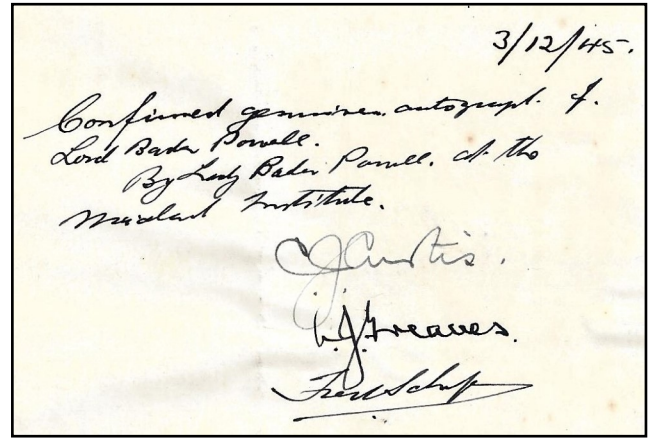 3/12/45.
Confirmed genuine autograph. of.
Lord Baden Powell.
By Lady Baden Powell. at the
Midland Institute.
C J Curtis.
J. Greaves.
Fred